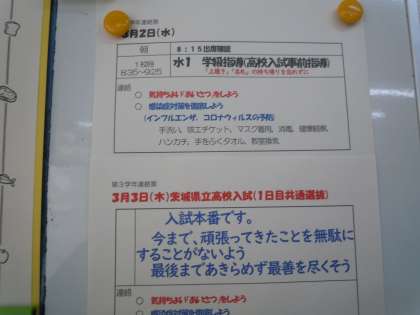 3月2日(水)
朝 8:15出席確認
1校時
8:35~9:25
水1 学級指導(高校入試事前指導)
「上履き」「名札」の持ち帰りを忘れずに
連絡
○ 気持ちよい「あいさつ」をしよう
○ 感染症対策を徹底しよう
(インフルエンザ、コロナウィルスの予防)
手洗い、咳エチケット、マスク着用、消毒、健康観察、
ハンカチ、手をふくタオル、教室換気
第3学年連絡票
3月3日(木)茨城県立高校入試(1日目共通選抜)
入試本番です。
今まで、頑張ってきたことを無駄に
することがないよう
最後まであきらめず最善を尽くそう
連絡
○ 気持ちよい「あいさつ」をしよう
○ 感染症対策を徹底しよう